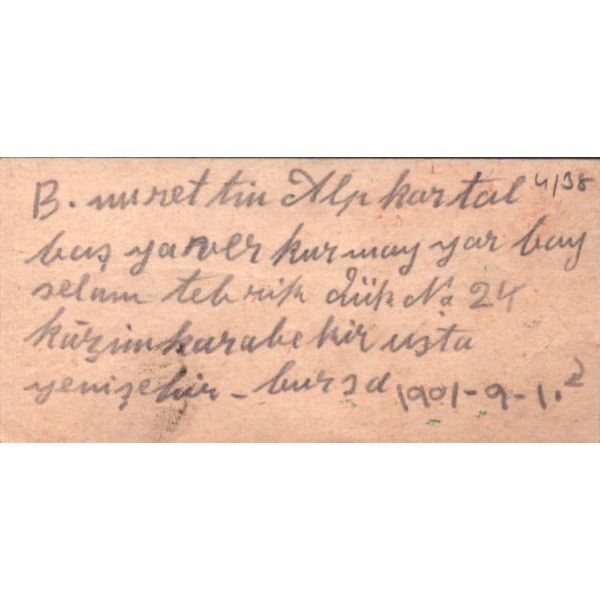 B. nurettin Alpkartal 4/38
baş yaver kurmay yar bay
selam tebrik dük No 24
kâzimkarabekir usta
yenişehir - bursa 1901-9-1.2